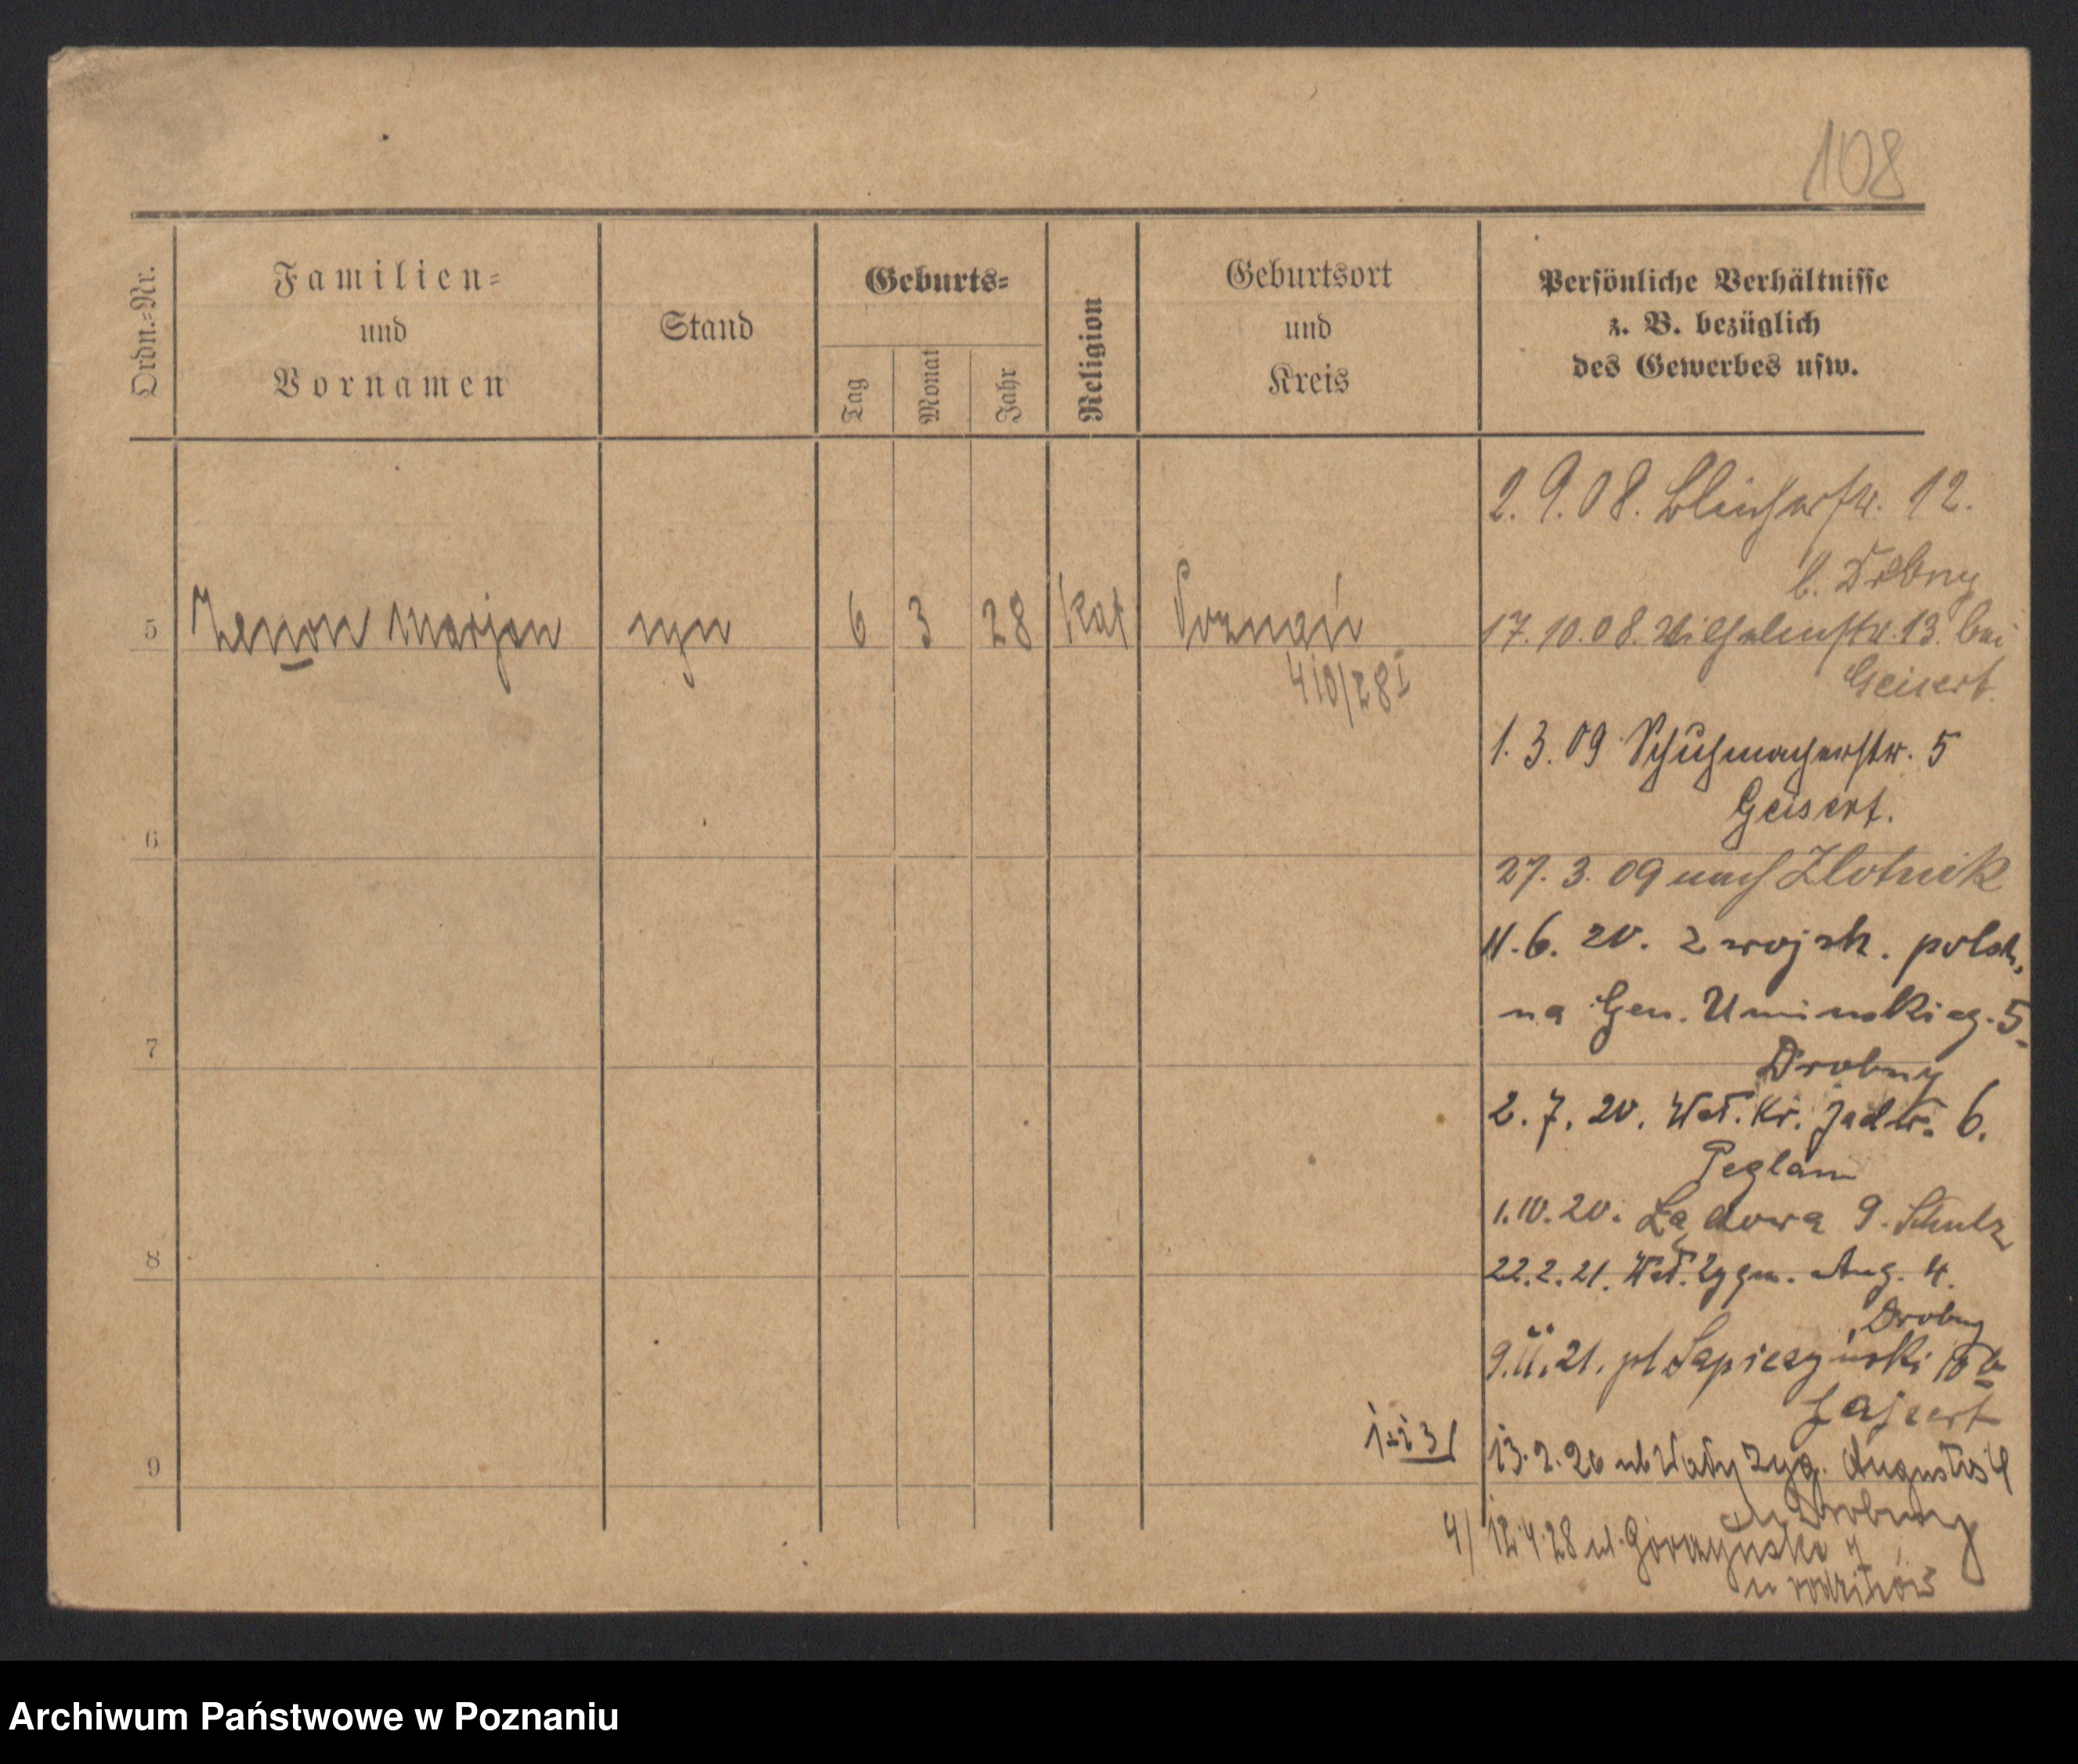 108
Ordn.=Nr.
Familien=
und
Vornamen
Stand
Geburts=
Tag
Monat
Jahr
Religion
Geburtsort
und
Kreis
Persönliche Verhältnisse
z. B. bezüglich
des Gewerbes usw.
2. 9. 08. Bleicherstr. 12.
b. Drobny
5 Zenon Marjan syn 6 3 28 Kat Poznań
410/28 I
17. 10. 08. Wilhelmstr. 13. bei
Geisert.
1. 3. 09 Schuhmacherstr. 5
Geisert.
6
27. 3. 09 nach Zlotnik
11. 6. 20. z wojsk. polsk,
na Gen. Umińskieg. 5.
7
Drobny
2. 7. 20. Wał. Kr. Jadw. 6.
1. 10. 20. Łąkowa 9. Schulz
8
22. 2. 21. Wał. Zygm. Aug. 4.
Drobny
9. 21. pl Sapieżyński 10 b
9
13. 2. 26 Wały Zyg. Augusta 4
Drobny
4/ 12.4.28 ul. Góczyńska
u rodziców
Archiwum Państwowe w Poznaniu